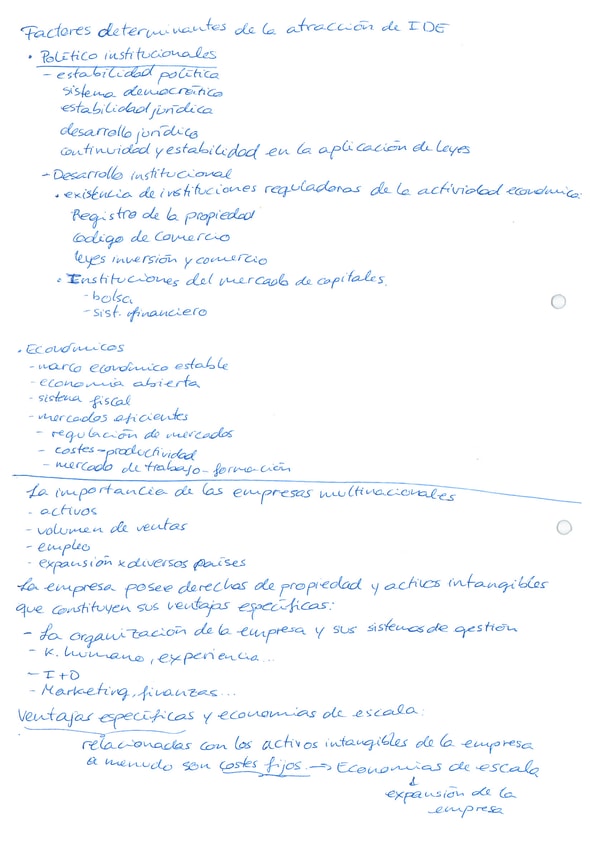 Factores determinantes de la atracción de IDE
• Político institucionales
- estabilidad política
sistema democrático
estabilidad jurídica
desarrollo jurídico
continuidad y estabilidad en la aplicación de leyes
- Desarrollo institucional
• existencia de instituciones reguladoras de la actividad económica:
Registro de la propiedad
código de comercio
leyes inversión y comercio
• Instituciones del mercado de capitales.
- bolsa
- sist. financiero
• Económicos
- marco económico estable
- economía abierta
- sistema fiscal
- mercados eficientes
- regulación de mercados
- costes-productividad
- mercado de trabajo-formación
La importancia de las empresas multinacionales
- activos
- volumen de ventas
- empleo
- expansión x diversos países
La empresa posee derechos de propiedad y activos intangibles
que constituyen sus ventajas específicas:
- La organización de la empresa y sus sistemas de gestión
- K. humano, experiencia...
- I+D
- Marketing, finanzas...
Ventajas específicas y economías de escala:
relacionadas con los activos intangibles de la empresa
a menudo son costes fijos. → Economías de escala
↓
expansión de la
empresa